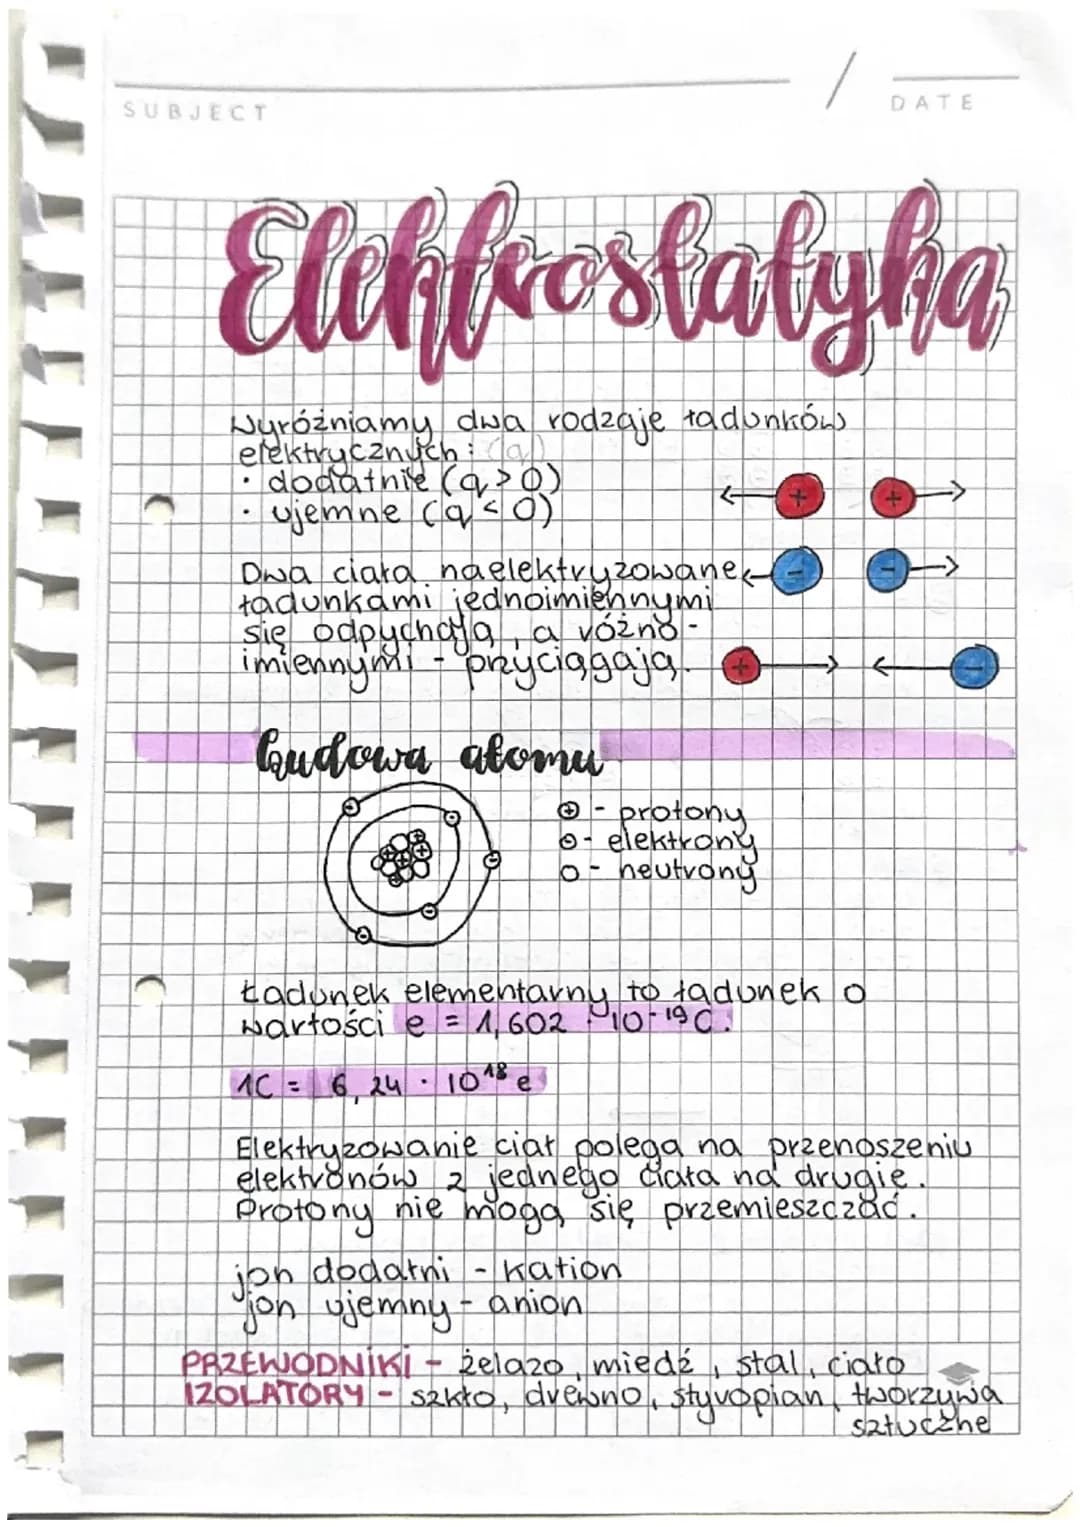 SUBJECT
DATE
Elektrostatyka
Wyróżniamy dwa rodzaje ładunków
elektrycznych: (q)
• dodatnie (q > 0)
• ujemne (q < 0)
+ +
Dwa ciała naelektryzowane
- -
ładunkami jednoimiennymi
się odpychają, a różno-
imiennymi - przyciągają.
+ -
budowa atomu
⊕ - protony
⊖ - elektrony
○ - neutrony
Ładunek elementarny to ładunek o
wartości e = 1,602 · 10⁻¹⁹ C.
1C = 6,24 · 10¹⁸ e
Elektryzowanie ciał polega na przenoszeniu
elektronów z jednego ciała na drugie.
Protony nie mogą się przemieszczać.
jon dodatni - kation
jon ujemny - anion
PRZEWODNIKI - żelazo, miedź, stal, ciało
IZOLATORY - szkło, drewno, styropian, tworzywa
sztuczne